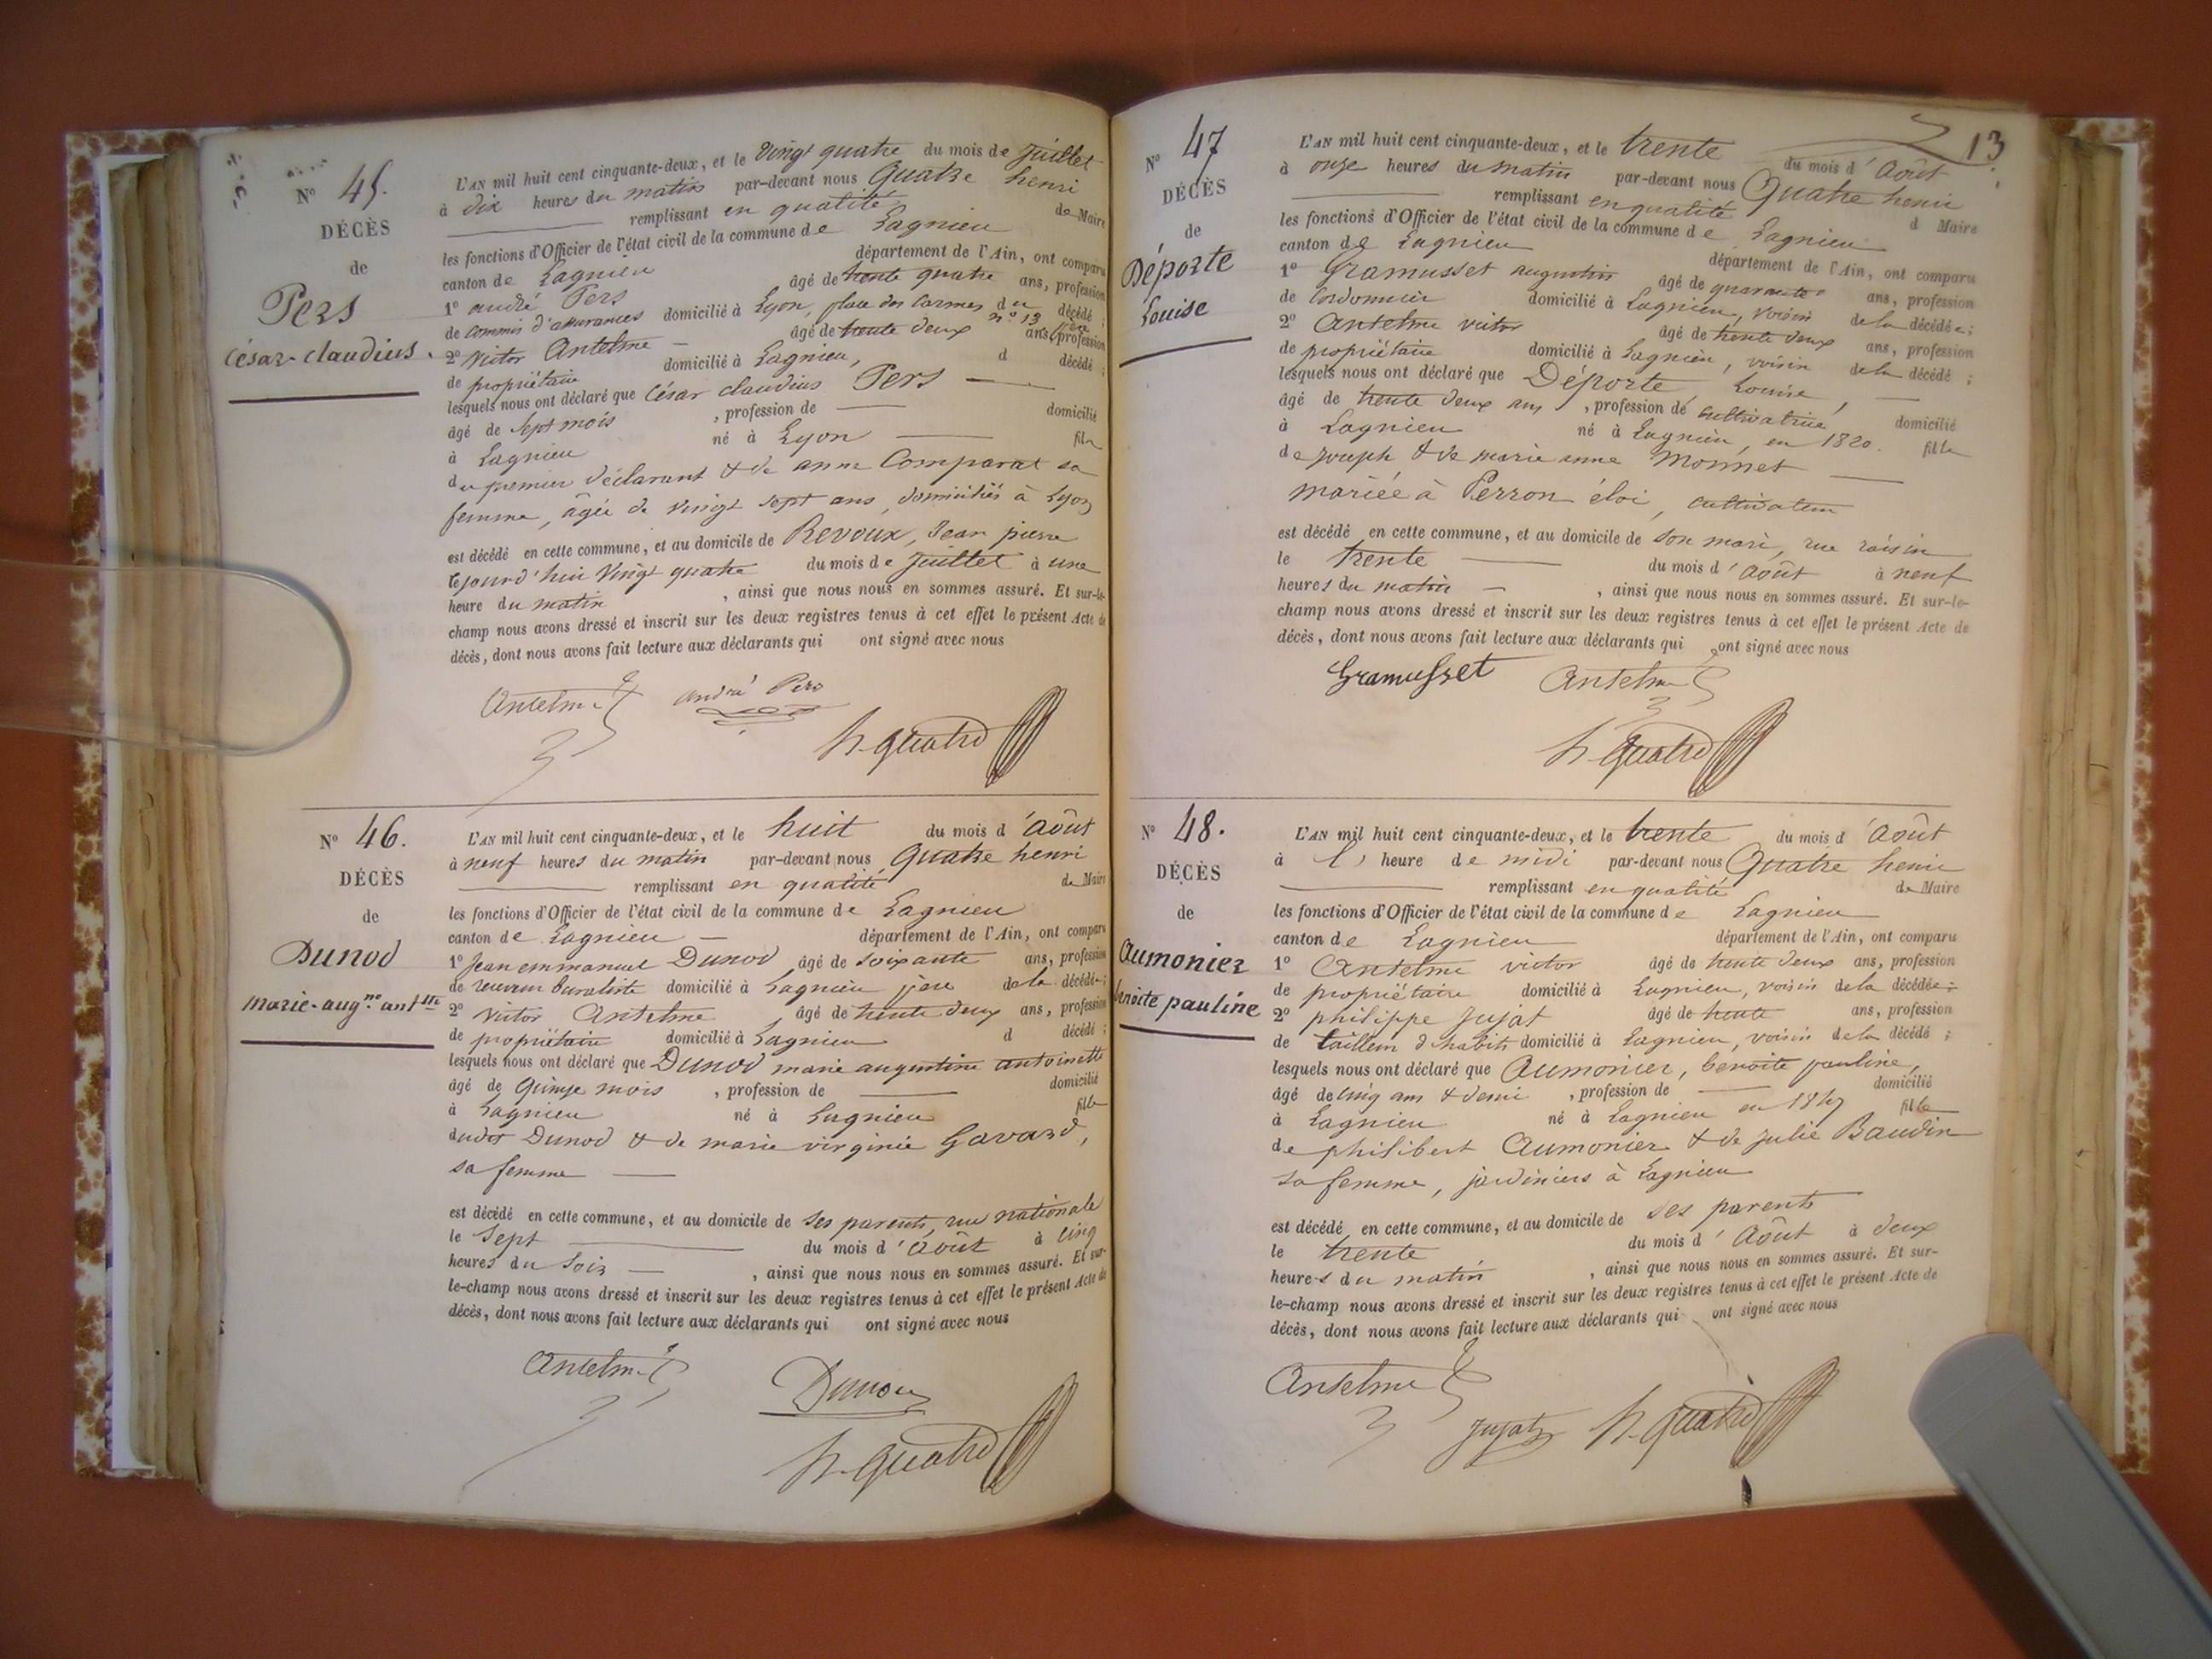 N° 45.
DÉCÈS
de
Pers
César-claudius.
L'AN mil huit cent cinquante-deux, et le Vingt quatre du mois de juillet
à dix heures du matin par-devant nous Quatre henri
remplissant en qualité de Maire
les fonctions d'Officier de l'état civil de la commune de Lagnieu
canton de Lagnieu département de l'Ain, ont comparu
1° andré Pers âgé de trente quatre ans, profession
de commis d'assurances domicilié à Lyon, place des Carmes n° 13 père du décédé;
2° Victor Antelme âgé de trente deux ans, profession
de propriétaire domicilié à Lagnieu, d décédé;
lesquels nous ont déclaré que César claudius Pers
âgé de sept mois, profession de domicilié
à Lagnieu né à Lyon fils
du premier déclarant & de anne Comparat sa
femme, âgée de vingt sept ans, domiciliés à Lyon
est décédé en cette commune, et au domicile de Revoux, Jean pierre
cejourd'hui Vingt quatre du mois de juillet à une
heure du matin, ainsi que nous nous en sommes assuré. Et sur-le-
champ nous avons dressé et inscrit sur les deux registres tenus à cet effet le présent Acte de
décès, dont nous avons fait lecture aux déclarants qui ont signé avec nous
Antelme andré Pers
h. Quatre
N° 46.
DÉCÈS
de
Dunod
marie-aug.ne ant.tte
L'AN mil huit cent cinquante-deux, et le huit du mois d'Août
à neuf heures du matin par-devant nous Quatre henri
remplissant en qualité de Maire
les fonctions d'Officier de l'état civil de la commune de Lagnieu
canton de Lagnieu département de l'Ain, ont comparu
1° Jean emmanuel Dunod âgé de soixante ans, profession
de receveur buraliste domicilié à Lagnieu père de la décédée;
2° Victor Antelme âgé de trente deux ans, profession
de propriétaire domicilié à Lagnieu d décédé;
lesquels nous ont déclaré que Dunod marie augustine antoinette
âgé de quinze mois, profession de domicilié
à Lagnieu né à Lagnieu fille
dudit Dunod & de marie virginie Gavard,
sa femme
est décédé en cette commune, et au domicile de ses parents, rue nationale
le sept du mois d'Août à cinq
heures du soir, ainsi que nous nous en sommes assuré. Et sur-
le-champ nous avons dressé et inscrit sur les deux registres tenus à cet effet le présent Acte de
décès, dont nous avons fait lecture aux déclarants qui ont signé avec nous
Antelme
Dunod
h. Quatre
13
N° 47
DÉCÈS
de
Déporte
Louise
L'AN mil huit cent cinquante-deux, et le trente du mois d'Août
à onze heures du matin par-devant nous Quatre henri
remplissant en qualité d Maire
les fonctions d'Officier de l'état civil de la commune de Lagnieu
canton de Lagnieu département de l'Ain, ont comparu
1° Gramusset augustin âgé de quarante ans, profession
de Cordonnier domicilié à Lagnieu, voisin de la décédée;
2° Antelme victor âgé de trente deux ans, profession
de propriétaire domicilié à Lagnieu, voisin de la décédé;
lesquels nous ont déclaré que Déporte, Louise,
âgé de trente deux ans, profession de cultivatrice domicilié
à Lagnieu né à Lagnieu, en 1820. fille
de joseph & de marie anne Monnet
mariée à Perron éloi, cultivateur
est décédé en cette commune, et au domicile de son mari, rue raisin
le trente du mois d'Août à neuf
heures du matin, ainsi que nous nous en sommes assuré. Et sur-le-
champ nous avons dressé et inscrit sur les deux registres tenus à cet effet le présent Acte de
décès, dont nous avons fait lecture aux déclarants qui ont signé avec nous
Gramusset Antelme
h. Quatre
N° 48.
DÉCÈS
de
Aumonier
benoite pauline
L'AN mil huit cent cinquante-deux, et le trente du mois d'Août
à l' heure de midi par-devant nous Quatre henri
remplissant en qualité de Maire
les fonctions d'Officier de l'état civil de la commune de Lagnieu
canton de Lagnieu département de l'Ain, ont comparu
1° Antelme victor âgé de trente deux ans, profession
de propriétaire domicilié à Lagnieu, voisin de la décédée;
2° philippe Jujat âgé de trente ans, profession
de tailleur d'habits domicilié à Lagnieu, voisin de la décédé;
lesquels nous ont déclaré que Aumonier, benoite pauline,
âgé de cinq ans & demi, profession de domicilié
à Lagnieu né à Lagnieu en 1847 fille
de philibert Aumonier & de julie Baudin
sa femme, jardiniers à Lagnieu
est décédé en cette commune, et au domicile de ses parents
le trente du mois d'Août à deux
heures du matin, ainsi que nous nous en sommes assuré. Et sur-
le-champ nous avons dressé et inscrit sur les deux registres tenus à cet effet le présent Acte de
décès, dont nous avons fait lecture aux déclarants qui ont signé avec nous
Antelme
Jujat h. Quatre